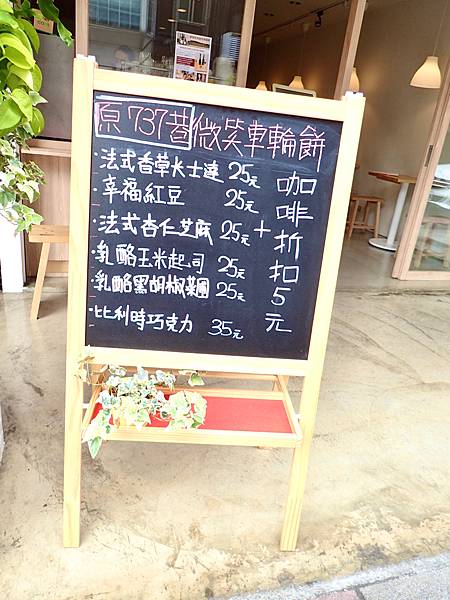 原737巷微笑車輪餅
・法式香草卡士達 25元
・幸福紅豆 25元
・法式杏仁芝麻 25元
・乳酪玉米起司 25元
・乳酪黑胡椒菜圃 25元
・比利時巧克力 35元
+咖啡折扣5元